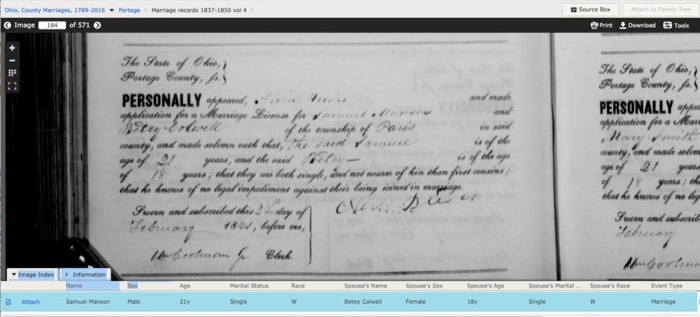 Ohio, County Marriages, 1789-2016 Portage Marriage records 1837-1850 vol 4
Source Box Attach to Family Tree
Image 184 of 571 Print Download Tools
The State of Ohio,
Portage County, ss.
PERSONALLY appeared, and made
application for a Marriage License for Samuel Manson and
Betsy Colwell of the township of Paris in said
county, and made solemn oath that, The said Samuel is of the
age of 21 years, and the said Betsy is of the age
of 18 years; that they are both single, and not nearer of kin than first cousins;
that he knows of no legal impediment against their being joined in marriage.
Sworn and subscribed this day of
February before me,
Clerk.
The State of Ohio,
Portage County, ss.
PERSONALLY
application for a
Mary Smith
county, and made
age of 21 years
of 18 years;
that he knows of no
Sworn and
February
Image Index Information
Name Sex Age Marital Status Race Spouse's Name Spouse's Sex Spouse's Age Spouse's Marital .. Spouse's Race Event Type
Attach Samuel Manson Male 21y Single W Betey Colwell Female 18y Single W Marriage